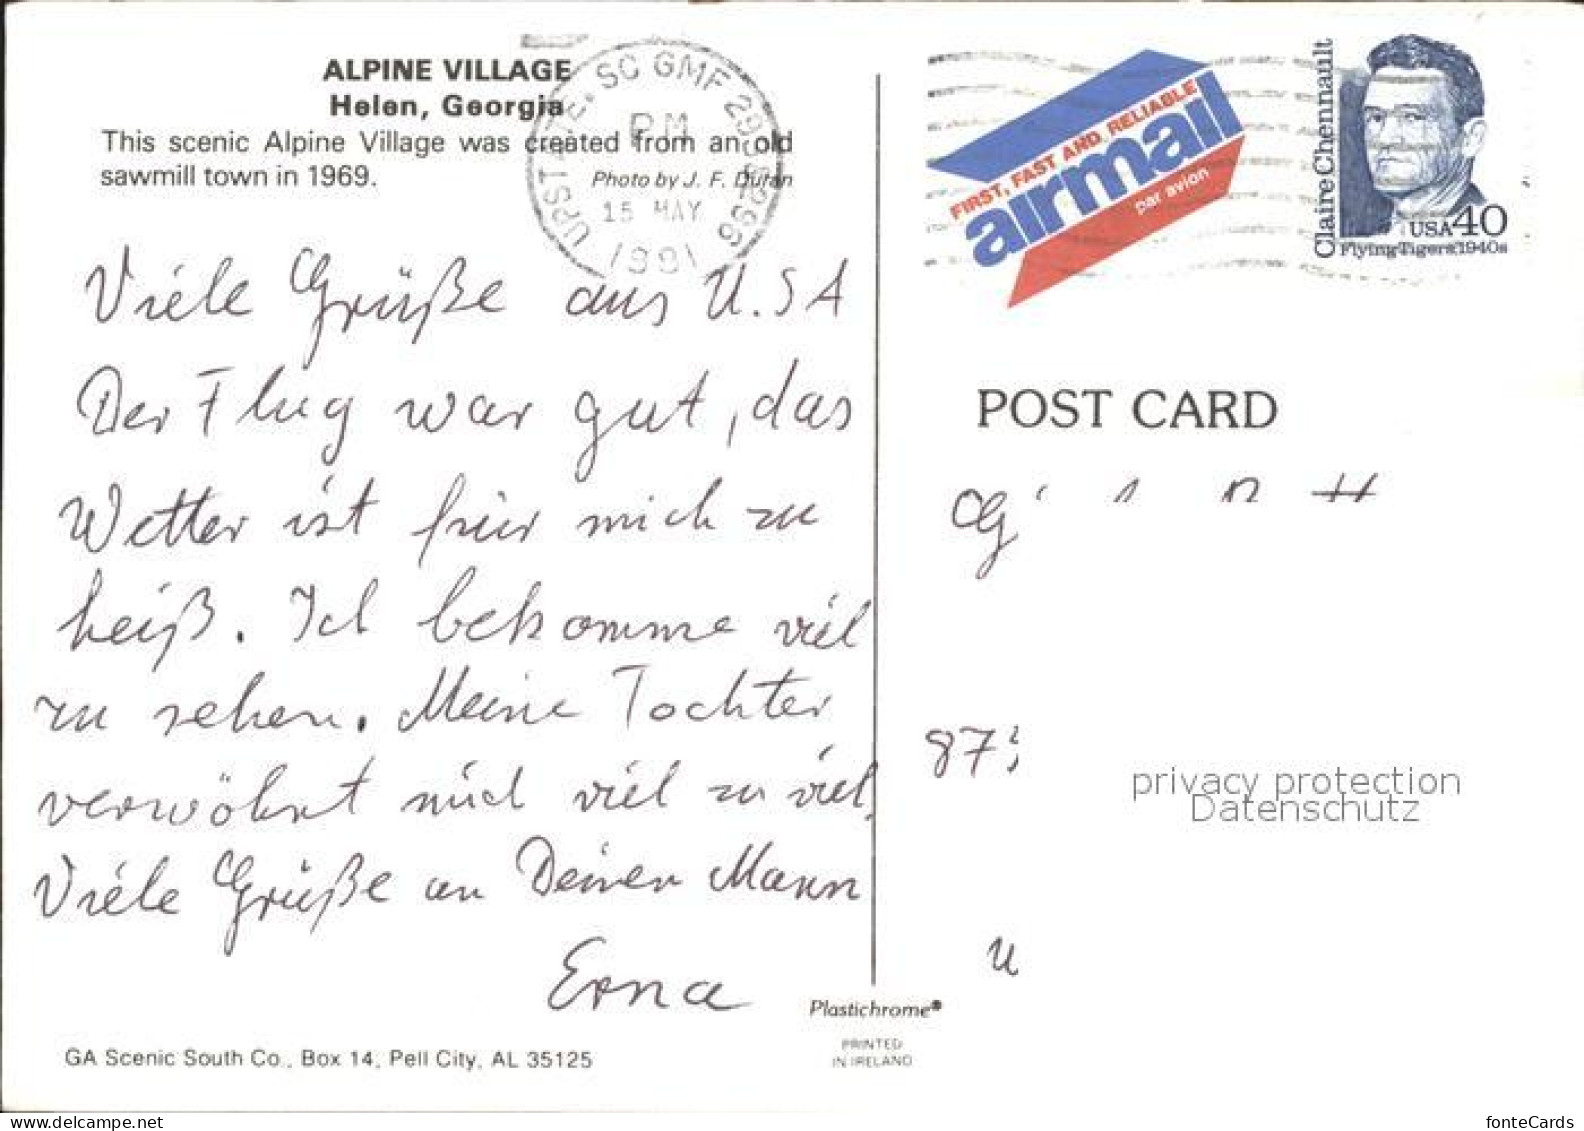 ALPINE VILLAGE
Helen, Georgia
This scenic Alpine Village was created from an old
sawmill town in 1969.
Photo by J. F. Duran
UPSTATE, SC GMF
PM
15 MAY
1991
Viele Grüße aus U.S A
Der Flug war gut, das
Wetter ist für mich zu
heiß. Ich bekomme viel
zu sehen. Meine Tochter
verwöhnt mich viel zu viel.
Viele Grüße an Deinen Mann
Erna
GA Scenic South Co., Box 14, Pell City, AL 35125
Plastichrome®
PRINTED
IN IRELAND
FIRST, FAST AND RELIABLE
airmail
par avion
Claire Chennault
USA 40
Flying Tigers, 1940s
POST CARD
87
privacy protection
Datenschutz
www.delcampe.net
fonteCards